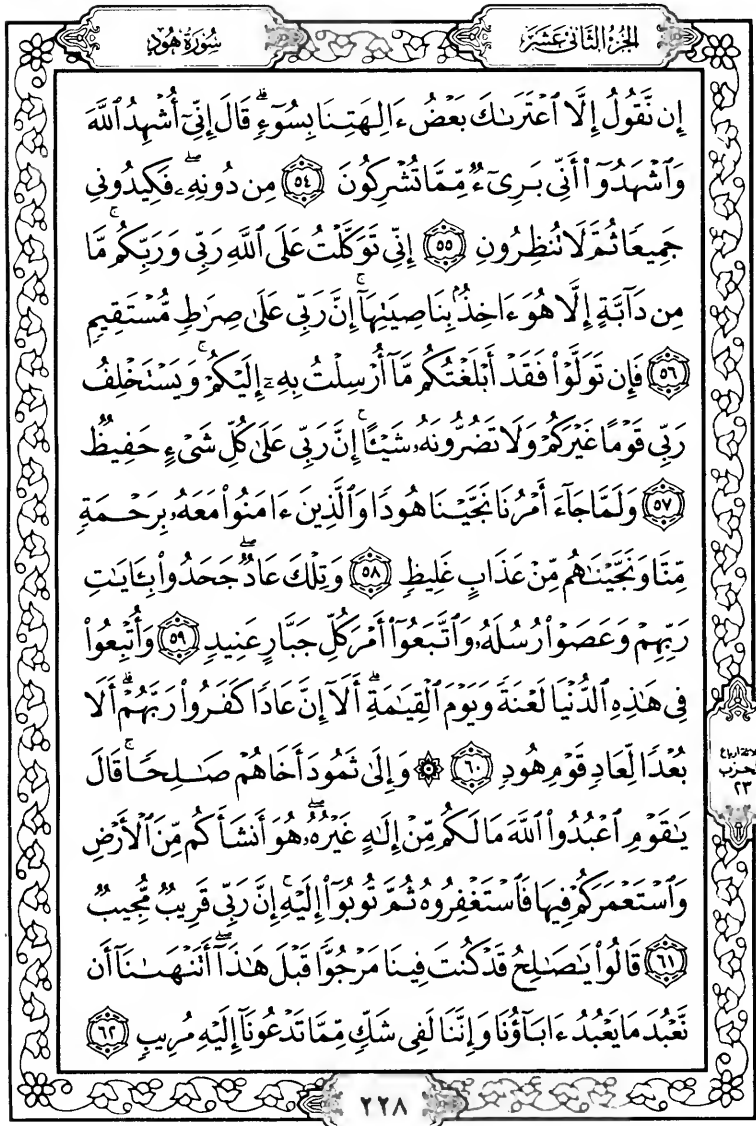 الجزء الثاني عشر
سورة هود
إِن نَّقُولُ إِلَّا ٱعْتَرَىٰكَ بَعْضُ ءَالِهَتِنَا بِسُوٓءٍۗ قَالَ إِنِّىٓ أُشْهِدُ ٱللَّهَ
وَٱشْهَدُوٓا۟ أَنِّى بَرِىٓءٌ مِّمَّا تُشْرِكُونَ ٥٤ مِن دُونِهِۦۖ فَكِيدُونِى
جَمِيعًا ثُمَّ لَا تُنظِرُونِ ٥٥ إِنِّى تَوَكَّلْتُ عَلَى ٱللَّهِ رَبِّى وَرَبِّكُمۚ مَّا
مِن دَآبَّةٍ إِلَّا هُوَ ءَاخِذٌۢ بِنَاصِيَتِهَآۚ إِنَّ رَبِّى عَلَىٰ صِرَٰطٍ مُّسْتَقِيمٍ
٥٦ فَإِن تَوَلَّوْا۟ فَقَدْ أَبْلَغْتُكُم مَّآ أُرْسِلْتُ بِهِۦٓ إِلَيْكُمْۚ وَيَسْتَخْلِفُ
رَبِّى قَوْمًا غَيْرَكُمْ وَلَا تَضُرُّونَهُۥ شَيْـًٔاۚ إِنَّ رَبِّى عَلَىٰ كُلِّ شَىْءٍ حَفِيظٌ
٥٧ وَلَمَّا جَآءَ أَمْرُنَا نَجَّيْنَا هُودًا وَٱلَّذِينَ ءَامَنُوا۟ مَعَهُۥ بِرَحْمَةٍ
مِّنَّا وَنَجَّيْنَٰهُم مِّنْ عَذَابٍ غَلِيظٍ ٥٨ وَتِلْكَ عَادٌۖ جَحَدُوا۟ بِـَٔايَٰتِ
رَبِّهِمْ وَعَصَوْا۟ رُسُلَهُۥ وَٱتَّبَعُوٓا۟ أَمْرَ كُلِّ جَبَّارٍ عَنِيدٍ ٥٩ وَأُتْبِعُوا۟
فِى هَٰذِهِ ٱلدُّنْيَا لَعْنَةً وَيَوْمَ ٱلْقِيَٰمَةِۗ أَلَآ إِنَّ عَادًا كَفَرُوا۟ رَبَّهُمْۗ أَلَا
بُعْدًا لِّعَادٍ قَوْمِ هُودٍ ٦٠ ۞ وَإِلَىٰ ثَمُودَ أَخَاهُمْ صَٰلِحًاۚ قَالَ
يَٰقَوْمِ ٱعْبُدُوا۟ ٱللَّهَ مَا لَكُم مِّنْ إِلَٰهٍ غَيْرُهُۥۖ هُوَ أَنشَأَكُم مِّنَ ٱلْأَرْضِ
وَٱسْتَعْمَرَكُمْ فِيهَا فَٱسْتَغْفِرُوهُ ثُمَّ تُوبُوٓا۟ إِلَيْهِۚ إِنَّ رَبِّى قَرِيبٌ مُّجِيبٌ
٦١ قَالُوا۟ يَٰصَٰلِحُ قَدْ كُنتَ فِينَا مَرْجُوًّا قَبْلَ هَٰذَآۖ أَتَنْهَىٰنَآ أَن
نَّعْبُدَ مَا يَعْبُدُ ءَابَآؤُنَا وَإِنَّنَا لَفِى شَكٍّ مِّمَّا تَدْعُونَآ إِلَيْهِ مُرِيبٍ ٦٢
أرباع
٢٣
٢٢٨